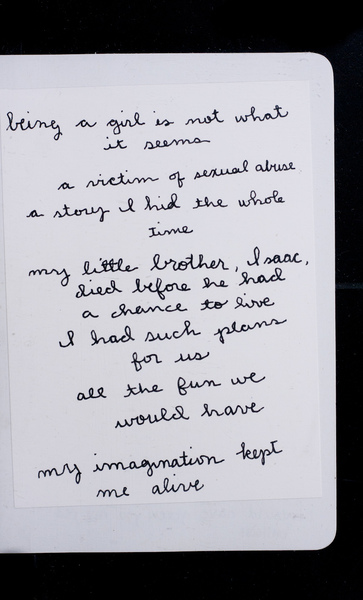 being a girl is not what
it seems
a victim of sexual abuse
a story I hid the whole
time
my little brother, Isaac,
died before he had
a chance to live
I had such plans
for us
all the fun we
would have
my imagination kept
me alive